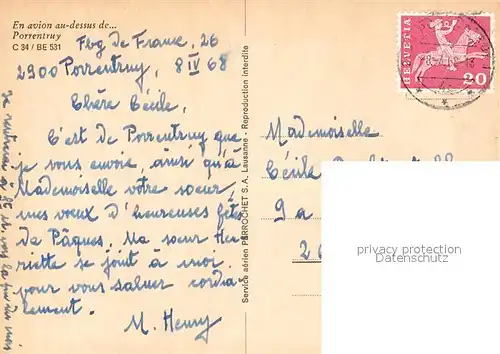 En avion au-dessus de...
Porrentruy
C 34 / BE 531
Fbg De France, 26
2900 Porrentruy, 8 IV 68
Chère Cécile,
C'est de Porrentruy que
je vous envoie, ainsi qu'à
Mademoiselle votre soeur,
mes voeux d'heureuses fêtes
de Pâques. Ma soeur Hen-
riette se joint à moi
pour vous saluer cordia-
lement.
M. Henry
Service aérien PERROCHET S.A. Lausanne - Reproduction interdite
HELVETIA
20
Mademoiselle
Cécile
privacy protection